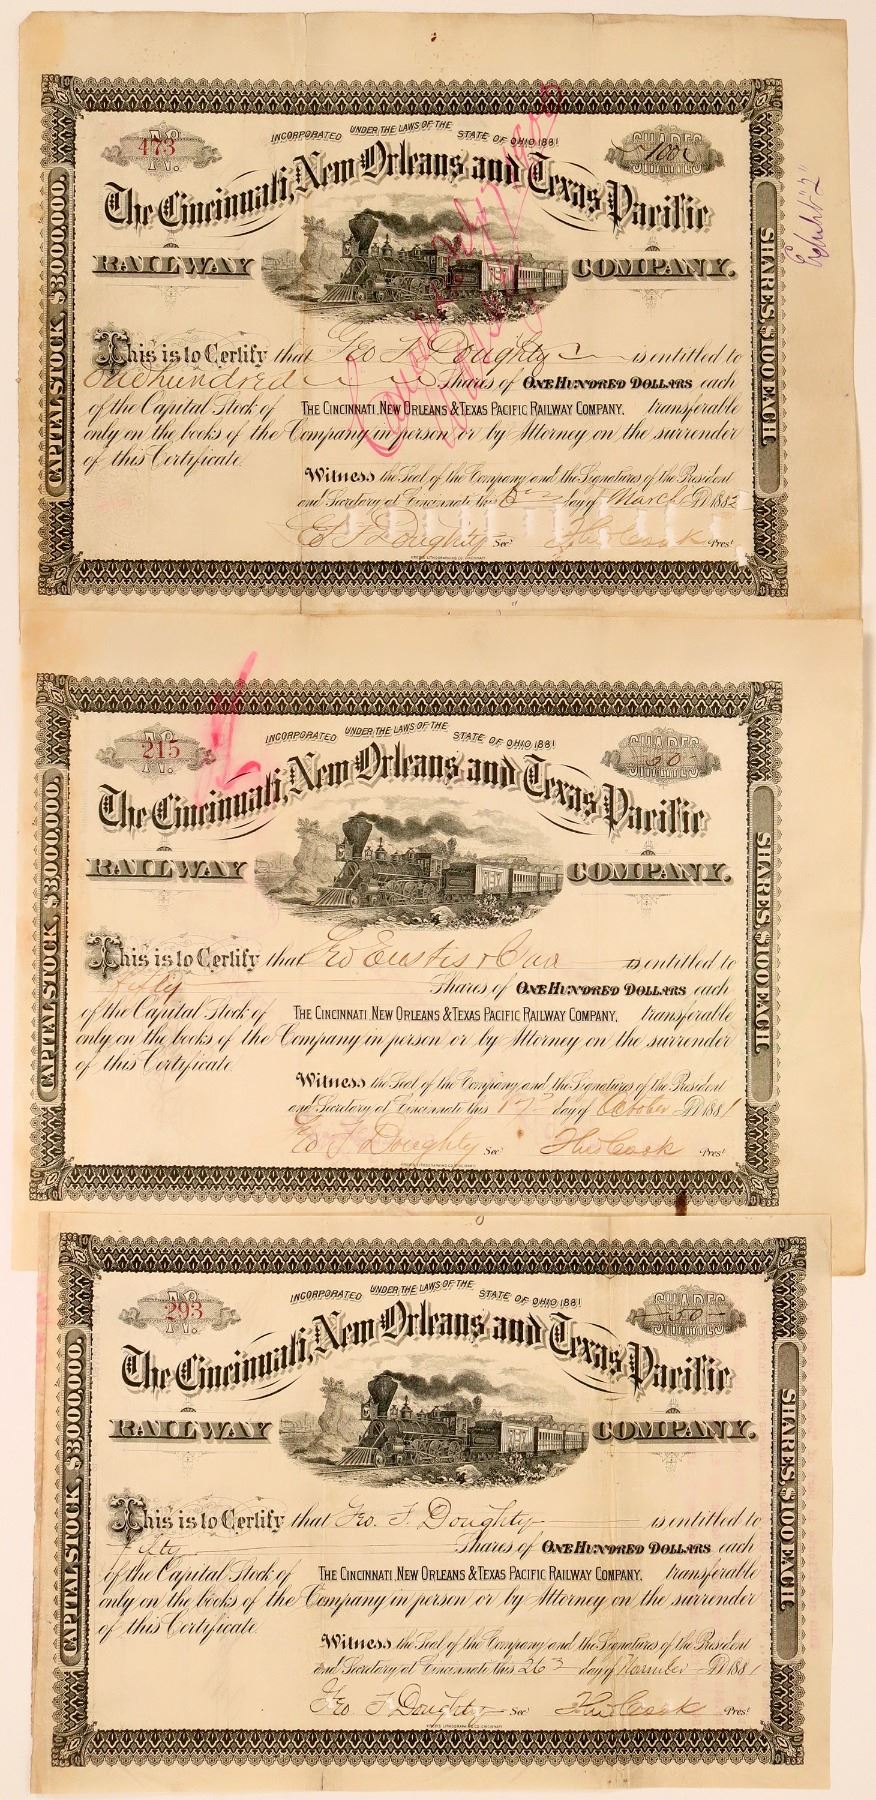 INCORPORATED UNDER THE LAWS OF THE STATE OF OHIO 1881
No. 473
SHARES 100
Exhibit "2"
The Cincinnati, New Orleans and Texas Pacific
RAILWAY COMPANY.
CAPITAL STOCK, $3,000,000.
SHARES, $100 EACH.
This is to Certify that Geo F Doughty is entitled to
One hundred Shares of ONE HUNDRED DOLLARS each
of the Capital Stock of THE CINCINNATI, NEW ORLEANS & TEXAS PACIFIC RAILWAY COMPANY, transferable
only on the books of the Company in person or by Attorney on the surrender
of this Certificate.
Witness the Seal of the Company and the Signatures of the President
and Secretary at Cincinnati this day of March AD 1882
Geo F Doughty Sec' Theo Cook Pres'
KREBS LITHOGRAPHING CO. CINCINNATI
INCORPORATED UNDER THE LAWS OF THE STATE OF OHIO 1881
No. 215
SHARES 50
The Cincinnati, New Orleans and Texas Pacific
RAILWAY COMPANY.
CAPITAL STOCK, $3,000,000.
SHARES, $100 EACH.
This is to Certify that Geo Eustis & Co is entitled to
fifty Shares of ONE HUNDRED DOLLARS each
of the Capital Stock of THE CINCINNATI, NEW ORLEANS & TEXAS PACIFIC RAILWAY COMPANY, transferable
only on the books of the Company in person or by Attorney on the surrender
of this Certificate
Witness the Seal of the Company and the Signatures of the President
and Secretary at Cincinnati this 17 day of October AD 1881
Geo F Doughty Sec' Theo Cook Pres'
KREBS LITHOGRAPHING CO. CINCINNATI
INCORPORATED UNDER THE LAWS OF THE STATE OF OHIO 1881
No. 293
SHARES 50
The Cincinnati, New Orleans and Texas Pacific
RAILWAY COMPANY.
CAPITAL STOCK, $3,000,000.
SHARES, $100 EACH.
This is to Certify that Geo. F. Doughty is entitled to
fifty Shares of ONE HUNDRED DOLLARS each
of the Capital Stock of THE CINCINNATI, NEW ORLEANS & TEXAS PACIFIC RAILWAY COMPANY, transferable
only on the books of the Company in person or by Attorney on the surrender
of this Certificate.
Witness the Seal of the Company and the Signatures of the President
and Secretary at Cincinnati this 26 day of November AD 1881
Geo F Doughty Sec' Theo Cook Pres'
KREBS LITHOGRAPHING CO. CINCINNATI